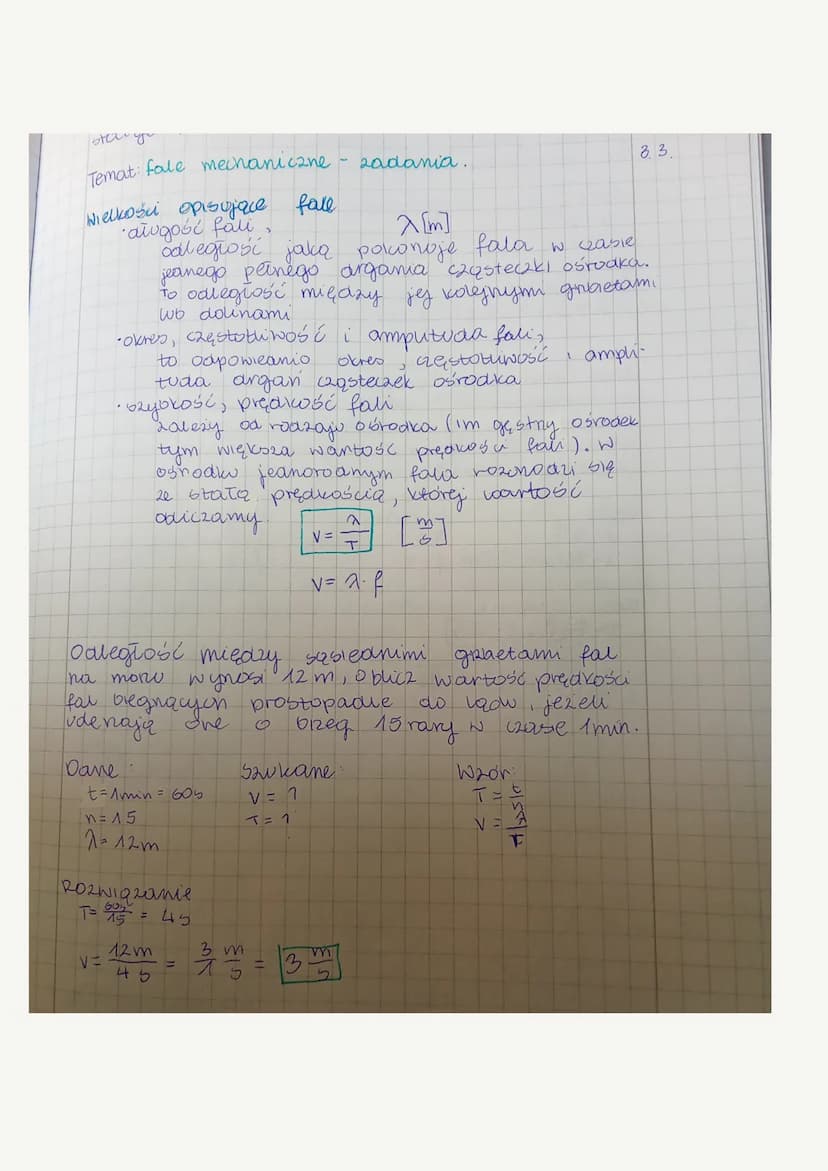 Temat: fale mechaniczne - zadania.
3.3.
Wielkości opisujące falę
• długość fali, λ [m]
odległość jaką pokonuje fala w czasie
jednego pełnego drgania cząsteczki ośrodka.
To odległość między jej kolejnymi grzbietami
lub dolinami
• okres, częstotliwość i amplituda fali,
to odpowiednio okres, częstotliwość i ampli-
tuda drgań cząsteczek ośrodka
• szybkość, prędkość fali
zależy od rodzaju ośrodka (im gęstszy ośrodek
tym większa wartość prędkości fali). W
ośrodku jednorodnym fala rozchodzi się
ze stałą prędkością, której wartość
obliczamy
V = λ/T [m/s]
V = λ · f
Odległość między sąsiednimi grzbietami fal
na morzu wynosi 12 m, oblicz wartość prędkości
fal biegnących prostopadle do lądu, jeżeli
uderzają one o brzeg 15 razy w czasie 1 min.
Dane: Szukane: Wzór:
t = 1 min = 60s V = ? T = t/n
n = 15 T = ? V = λ/T
λ = 12 m
Rozwiązanie
T = 60s/15 = 4s
V = 12m/4s = 3/1 m/s = 3 m/s